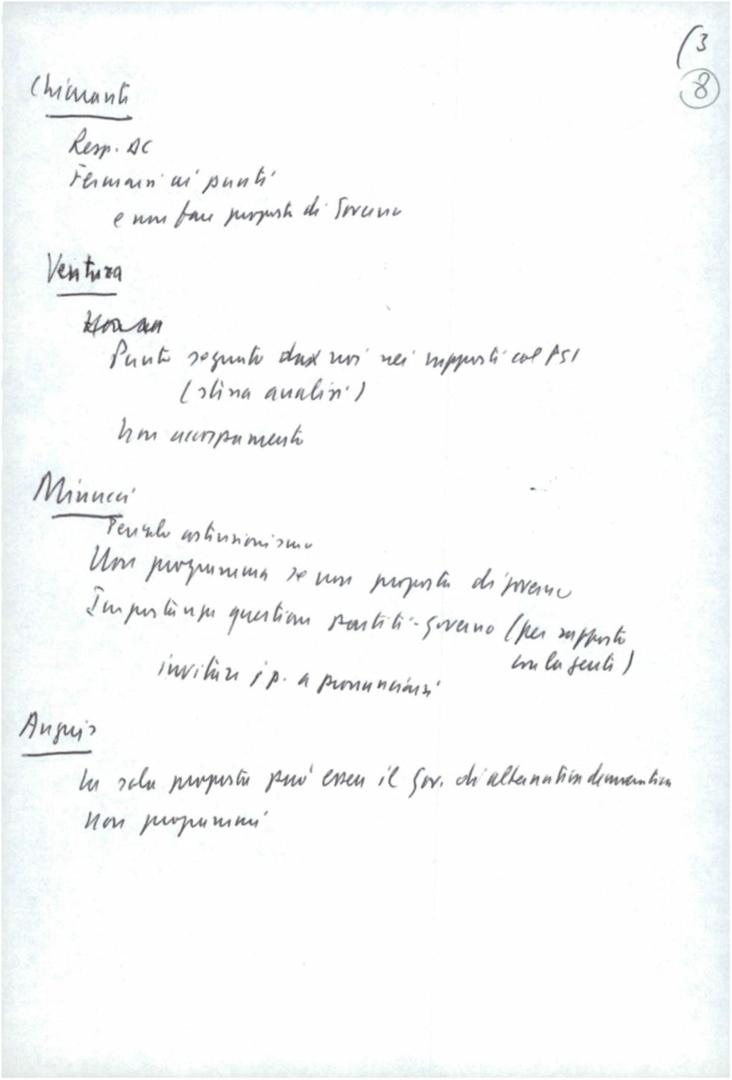 (3
8
Chiaranti
Resp. DC
Fermarsi ai punti
e non fare proposte di Governo
Ventura
Punto seguito da noi nei rapporti col PSI
(stessa analisi)
Non accorpamento
Minucci
Pericolo astensionismo
Non programma se non proposta di governo
Importanza questione partiti-governo (per rapporto
con la gente)
invitare i p. a pronunciarsi
Angius
La sola proposta può essere il Gov. di alternativa democratica
Non programmi